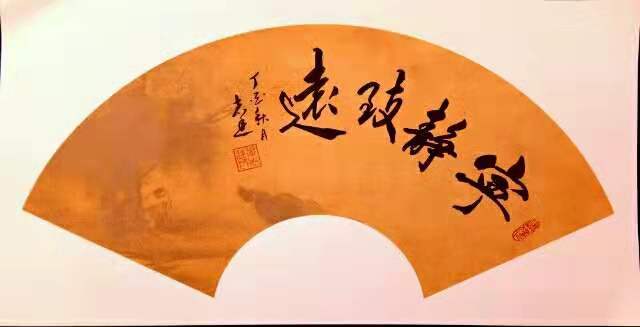 寧靜致遠
丁酉秋月